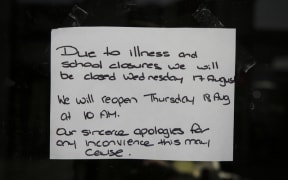 Due to illness and
school closures we will
be closed Wednesday 17 August
We will reopen Thursday 18 Aug
at 10 AM.
Our sincere apologies for
any inconvience this may
cause.